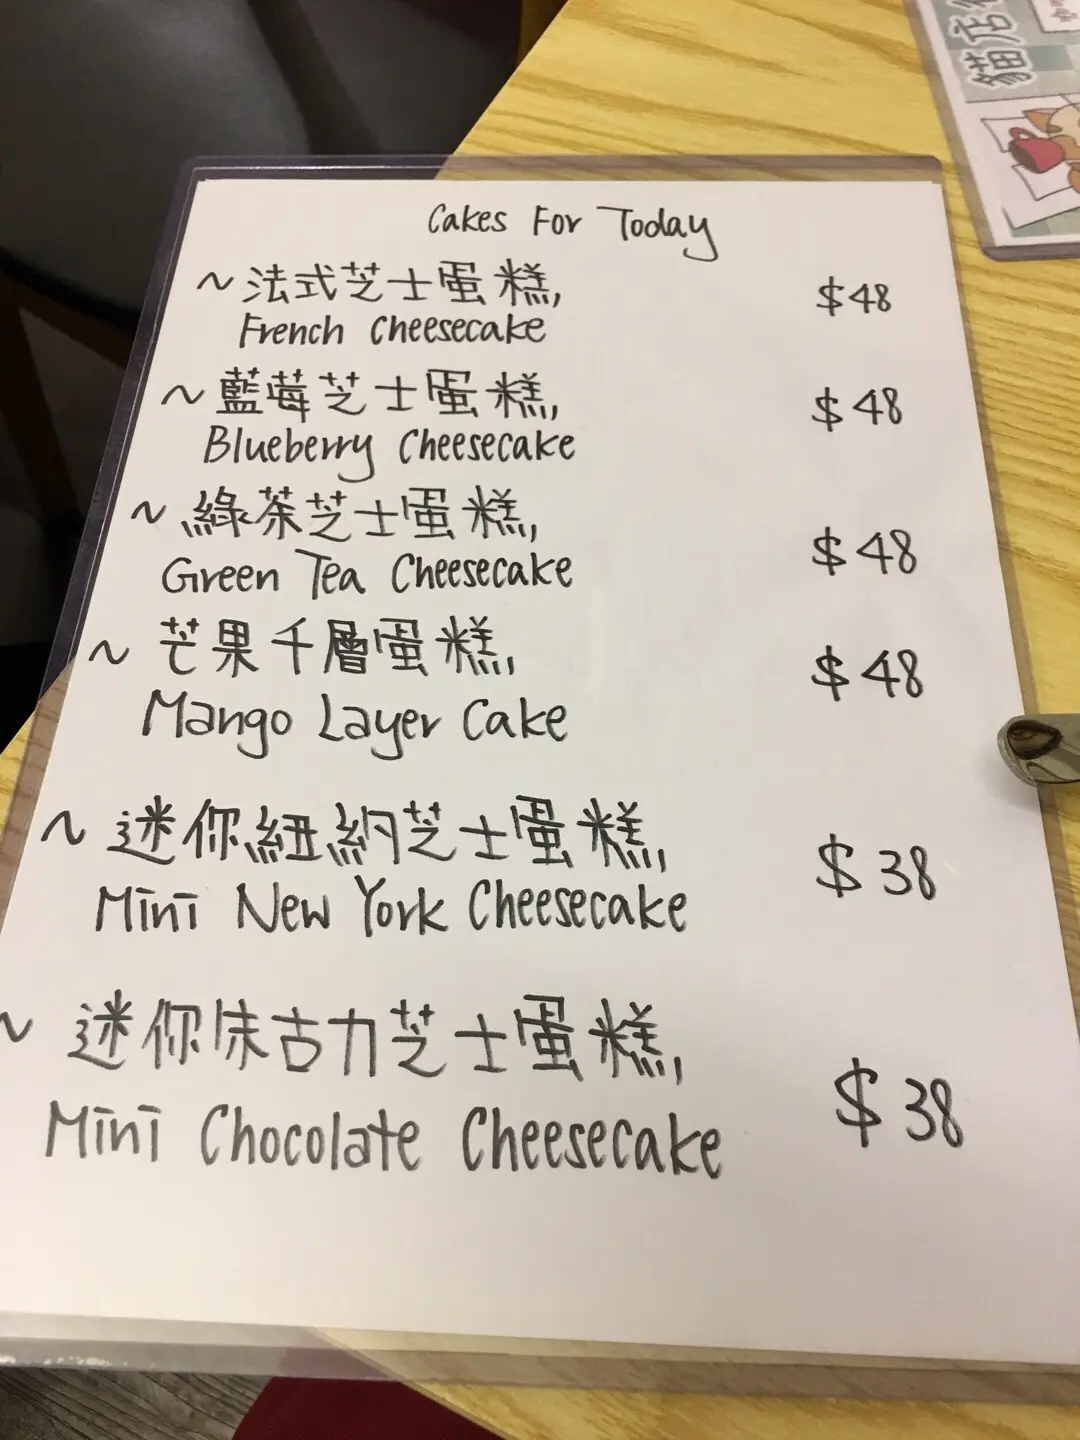 Cakes For Today
~法式芝士蛋糕, $48
French Cheesecake
~藍莓芝士蛋糕, $48
Blueberry Cheesecake
~綠茶芝士蛋糕, $48
Green Tea Cheesecake
~芒果千層蛋糕, $48
Mango Layer Cake
~迷你紐約芝士蛋糕, $38
Mini New York Cheesecake
~迷你朱古力芝士蛋糕, $38
Mini Chocolate Cheesecake
貓店